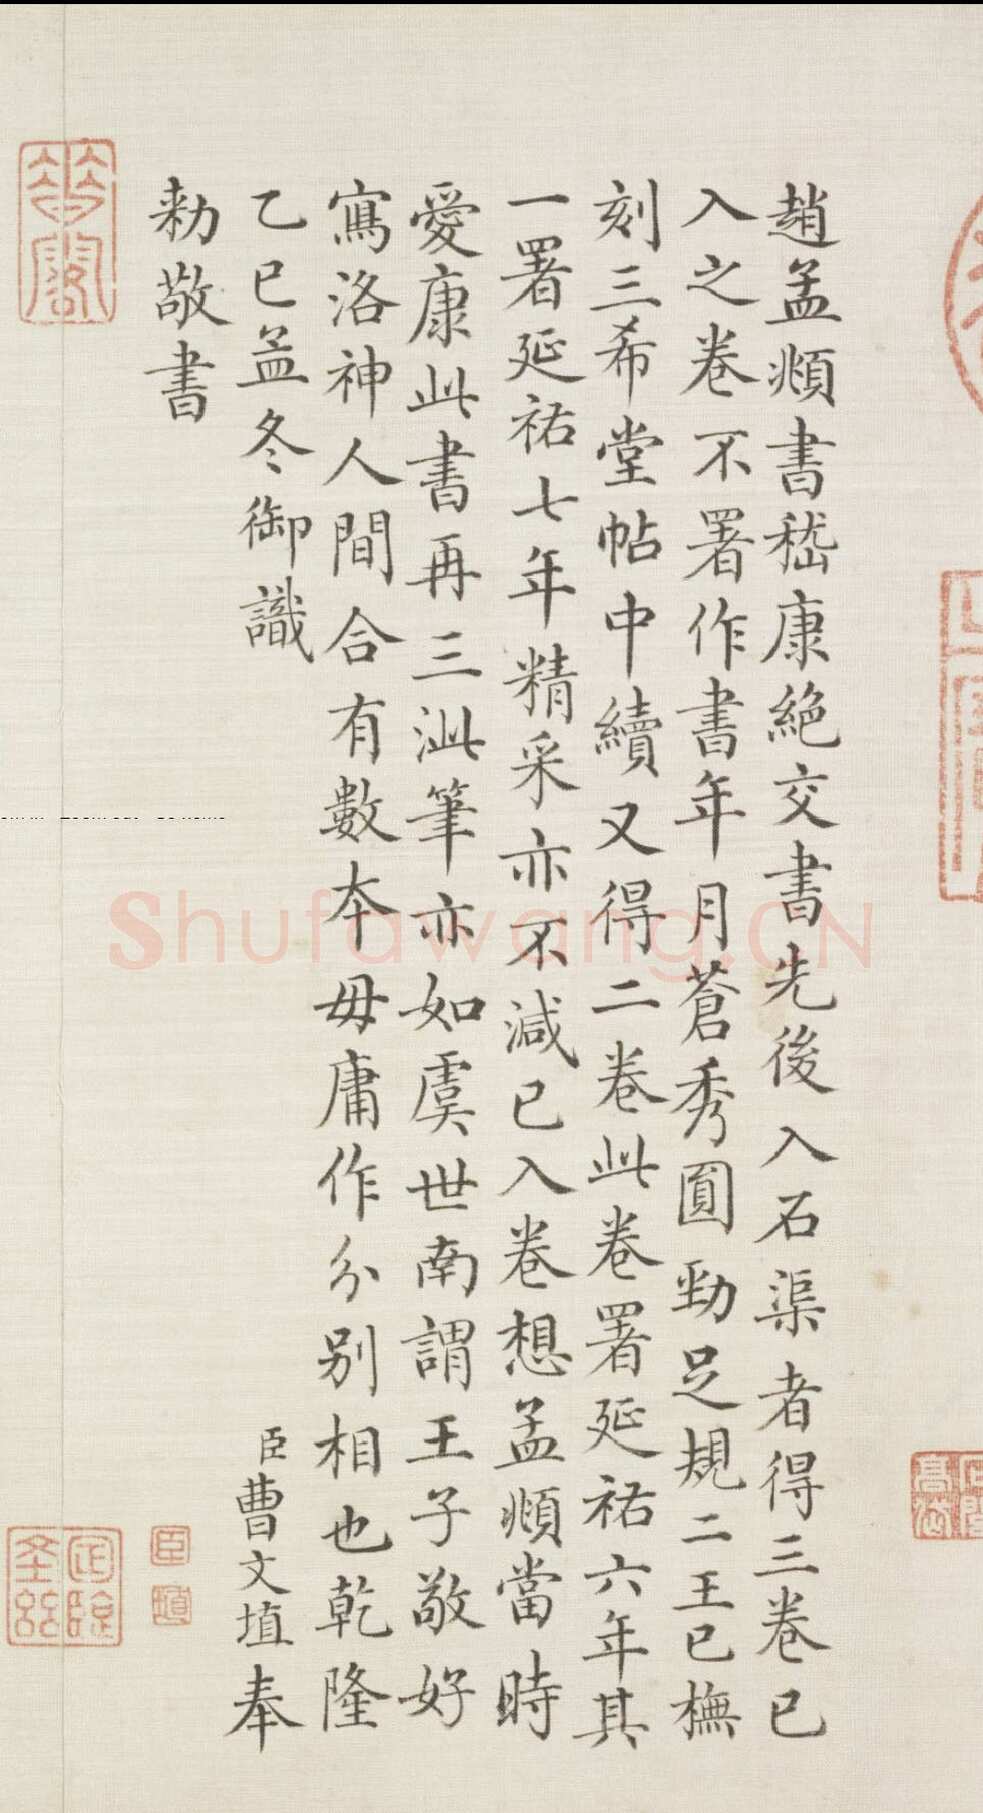 趙孟頫書嵇康絶交書先後入石渠者得三卷已
入之卷不署作書年月蒼秀圓勁足規二王已撫
刻三希堂帖中續又得二卷此卷署延祐六年其
一署延祐七年精采亦不減已入卷想孟頫當時
愛康此書再三泚筆亦如虞世南謂王子敬好
寫洛神人間合有數本毋庸作分别相也乾隆
乙巳孟冬御識
臣曹文埴奉
勅敬書
臣
埴
古稀
Shufawang.CN